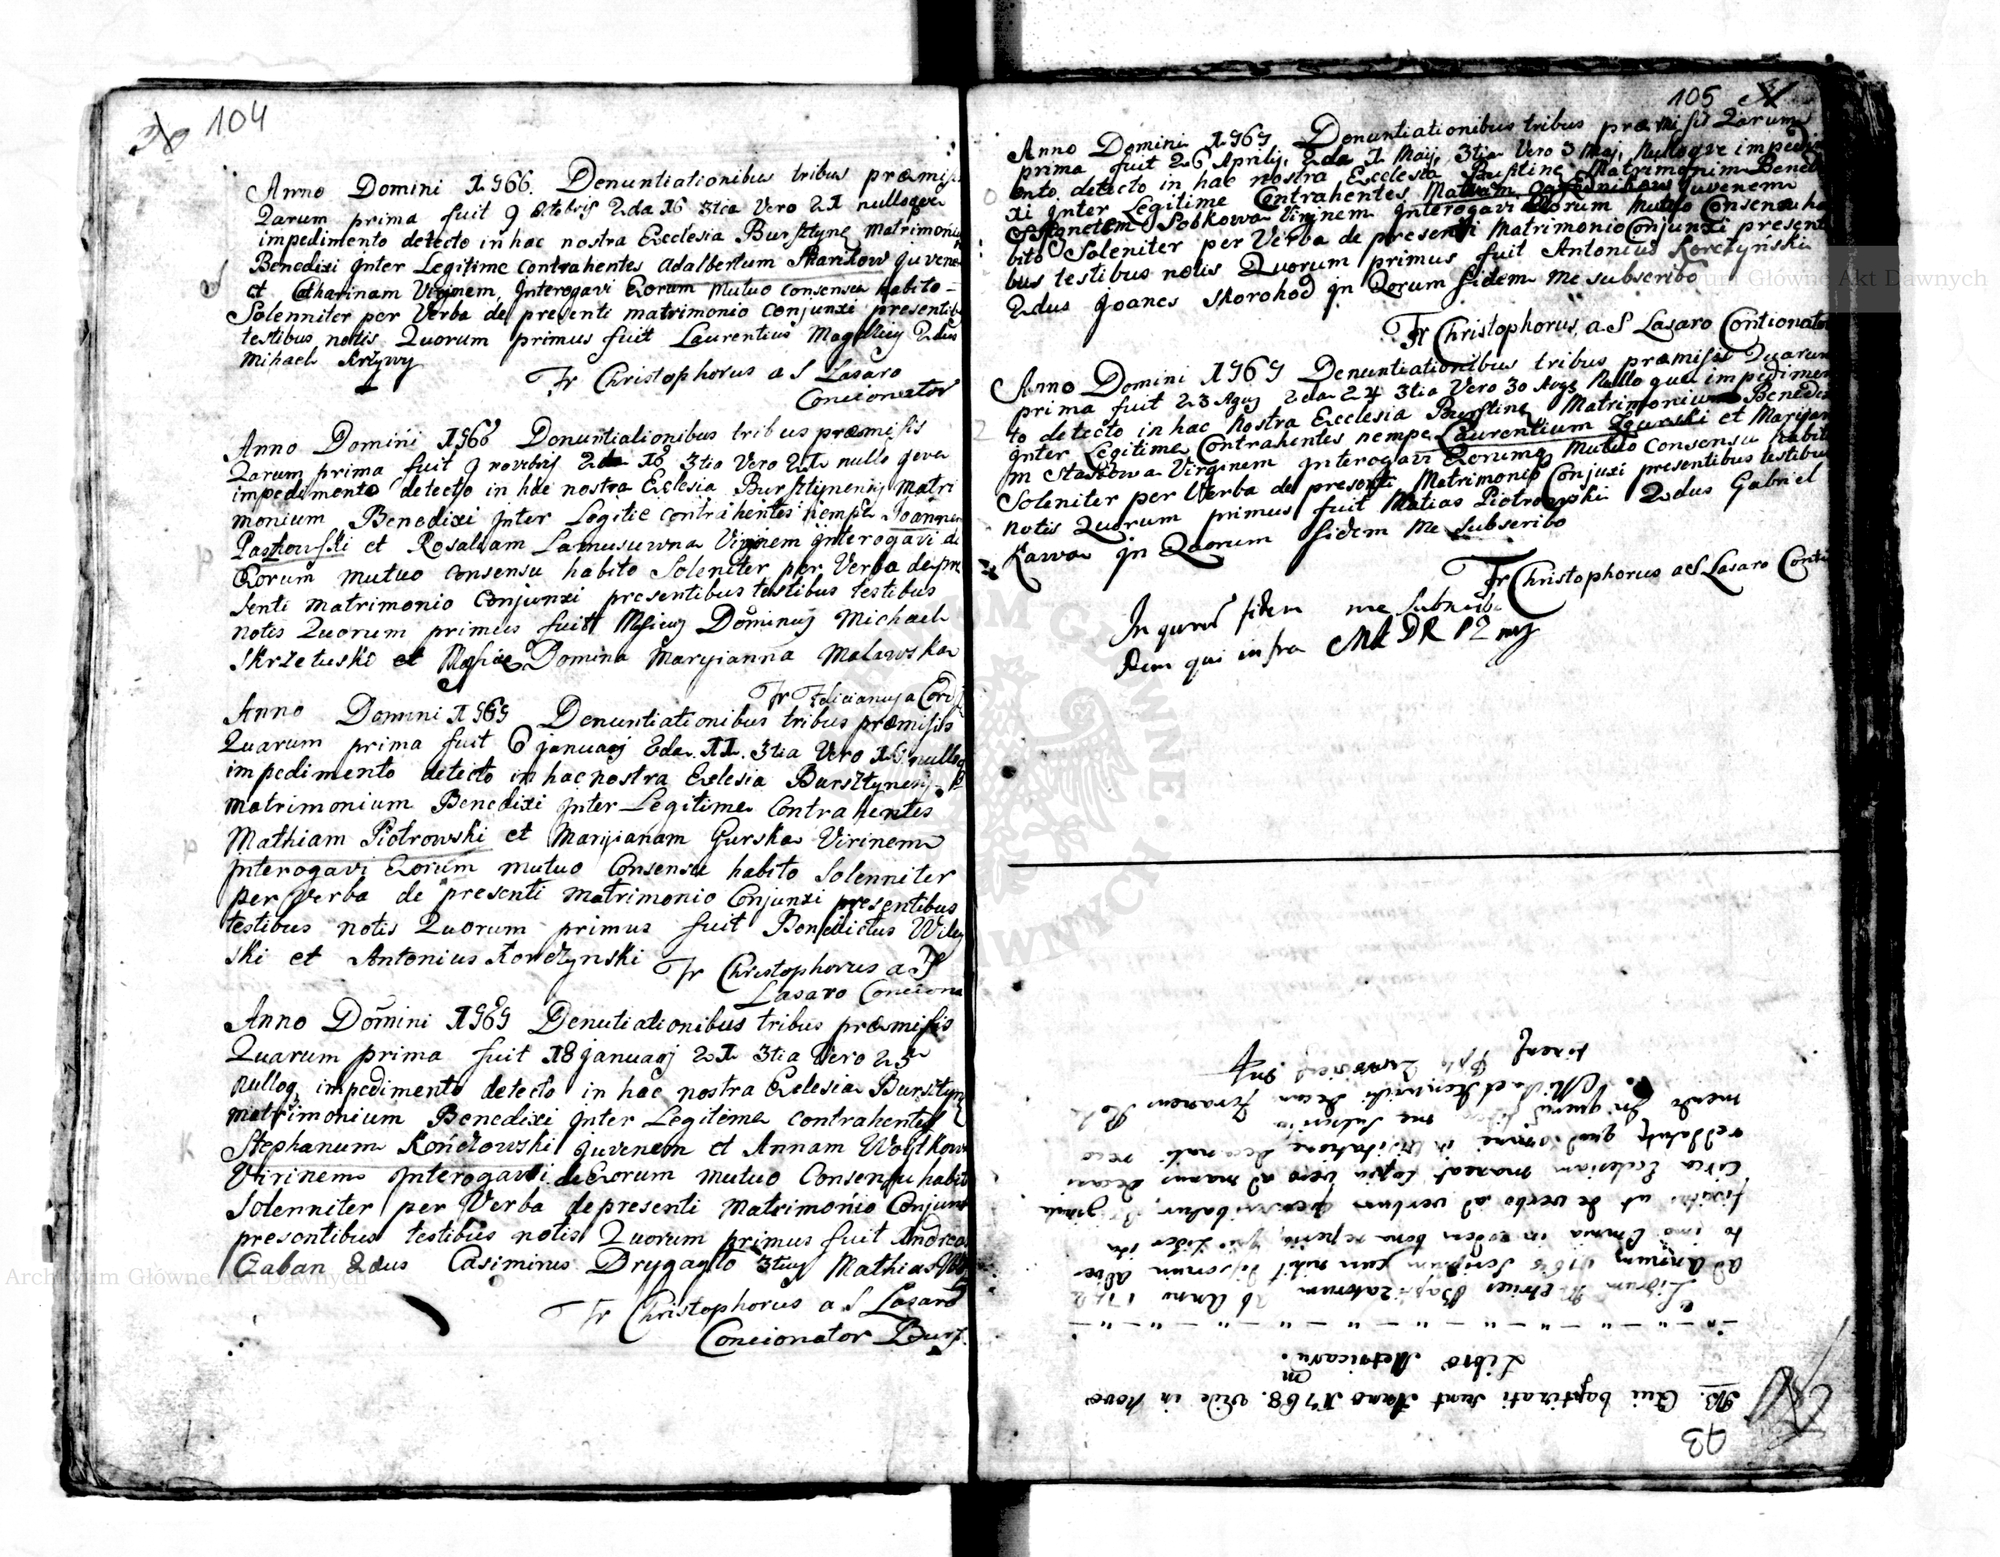 104
Anno Domini 1766. Denuntiationibus tribus præmis
Qarum prima fuit 9 Octobris 2da 16 3tia Vero 21 nulloqve
impedimento detecto in hac nostra Ecclesia Bursztyne Matrimoniu
Benedixi Inter Legitime contrahentes Adalbertum Skarzkow juvene
et Catharinam Virginem, Interogavi Eorum mutuo consensu habito
Solenniter per Verba de presenti matrimonio conjunxi presentib
testibus notis Quorum primus fuit Laurentius 2dus
Mihael Krzywy
Fr Christophorus a S Lasaro
Concionator
Anno Domini 1766 Denuntiationibus tribus præmisis
Qarum prima fuit 9 novebris 2da 18 3tia Vero 21 nullo qeve
impedimento detecto in hac nostra Eclesia Bursztynensij Matri
monium Benedixi Inter Legitie contrahentes nempe Joannem
Paszkowski et Rosaliam Lamusuwna Virginem Interogavi de
Eorum mutuo consensu habito Soleniter per Verba de pre
senti matrimonio conjunxi presentibus testibus testibus
notis Quorum primus fuit Dominus Michael
Skrzetuski et Domina Maryianna Malawska
Fr Felicianus a Cord
Anno Domini 1769 Denuntiationibus tribus præmisis
Quarum prima fuit 6 januarij 2da 11 3tia Vero 15 nulloq
impedimento detecto in hac nostra Eclesia Bursztynensij
matrimonium Benedixi Inter Legitime contrahentes
Mathiam Piotrowski et Maryianam Gurska Virinem
Interogavi Eorum mutuo Consensu habito Solenniter
per verba de presenti matrimonio Conjunxi presentibus
testibus notis Quorum primus fuit Benedictus Wiley
ski et Antonius Korczynski
Fr Christophorus a S
Lasaro Conciona
Anno Domini 1769 Denutiationibus tribus præmisis
Quarum prima fuit 18 januarij 21 3tia Vero 25
nulloq impedimento detecto in hac nostra Eclesia Bursztyn
matrimonium Benedixi Inter Legitime contrahentes
Stephanum Kończowski juvenem et Annam Woytkow
Virinem Interogavi de Eorum mutuo Consensu habit
Solenniter per Verba de presenti Matrimonio Conjunx
presentibus testibus notis Quorum primus fuit Andreas
Czaban 2dus Casimirus Drygaylo 3tius Mathias
Fr Christophorus a S Lasaro
Concionator Burs.
105
Anno Domini 1769 Denuntiationibus tribus præmisis Qarum
prima fuit 26 Aprilij, 2da 1 Maij, 3tia Vero 3 Maj, Nulloqve impedi
ento detecto in hac nostra Ecclesia Burstine Matrimonium Bened
xi Inter Legitime Contrahentes juvenem
et Sobkowa Virginem Interogavi Eorum Mutuo Consensu ha
bito Soleniter per Verba de presenti Matrimonio Conjunxi presenti
bus testibus notis Quorum primus fuit Antonius Korczynski
2dus Joanes Skorohod In Qorum fidem me subscribo
Fr Christophorus a S Lasaro Contionator
Anno Domini 1769 Denuntiationibus tribus præmisis Quarum
prima fuit 23 2da 24 3tia Vero 30 Nullo que impedimen
to detecto in hac Nostra Ecclesia Burstine Matrimonium Benedi
Inter Legitime Contrahentes nempe Laurentium Zgurski et Mariian
m Staskowa Virginem Interogavi Eorumq Mutuo Consensu habito
Soleniter per Verba de presenti Matrimonio Conjuxi presentibus testibus
notis Quorum primus fuit Matias Piotrowski 2dus Gabriel
Kawa In Quorum fidem Me subscribo
Fr Christophorus a S Lasaro Conti
In quorũ fidem me subscribo
idem qui infra
93
NB. Qui baptizati sunt Anno 1768. Vide in Novo
Libro Metricarum.
Librum Metrices Baptizatorum Ab Anno 1742
ad Annum 1768 Scriptum